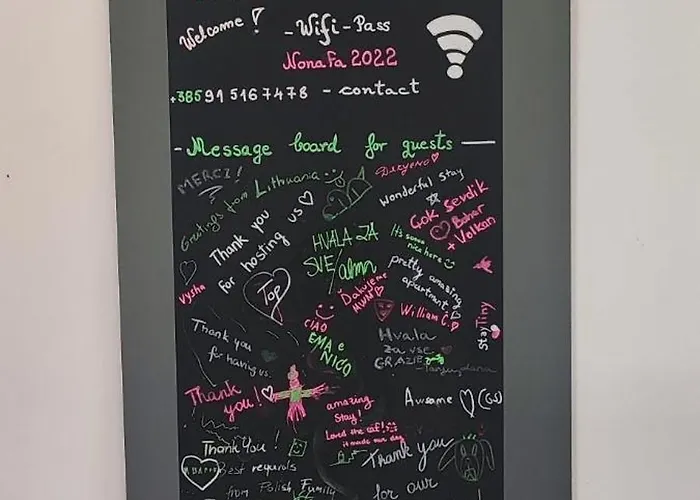 Welcome!
-Wifi-Pass
NonaFa 2022
+385915167478 - contact
-Message board for guests
MERCI!
Greetings from Lithuania
wonderful stay
Thank you
for hosting us
Çok sevdik
Bahar
+ Volkan
HVALA ZA
SVE/
It's soooo
nice here
pretty amazing
apartment
Vysha
Top
Dakujeme
William C.
StayTiny
CIAO
EMA e
NICO
Thank you
for having us.
Hvala
za vse
GRAZIE
Thank
you!
amazing
Stay!
Loved the cat!
it made our day
Awsome (GS)
Thank You!
Best regards
from Polish Family
Thank you
for our